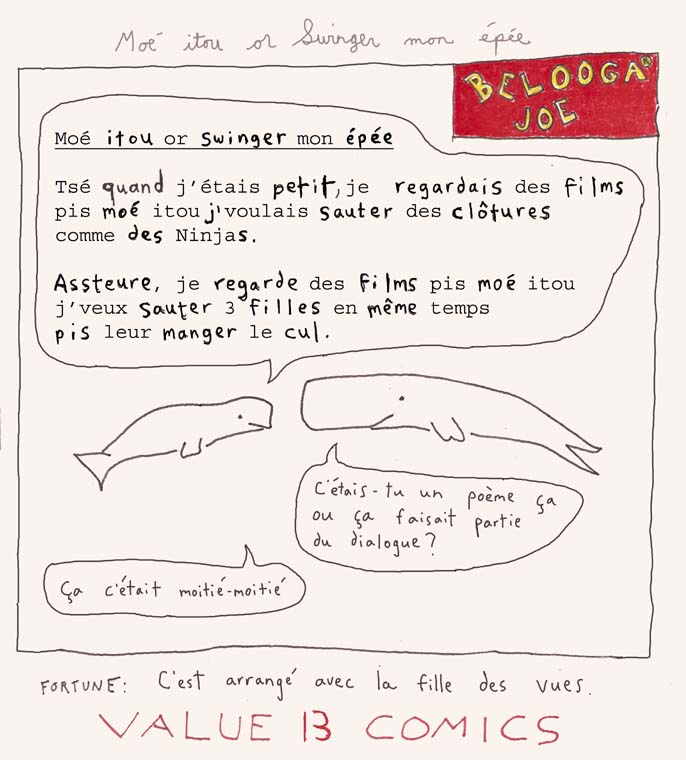 Moé itou or Swinger mon épée
BELOOGA
JOE
Moé itou or swinger mon épée
Tsé quand j'étais petit, je regardais des films
pis moé itou j'voulais sauter des clôtures
comme des Ninjas.
Assteure, je regarde des films pis moé itou
j'veux sauter 3 filles en même temps
pis leur manger le cul.
C'étais-tu un poème ça
ou ça faisait partie
du dialogue?
Ça c'était moitié-moitié
FORTUNE: C'est arrangé avec la fille des vues.
VALUE 13 COMICS